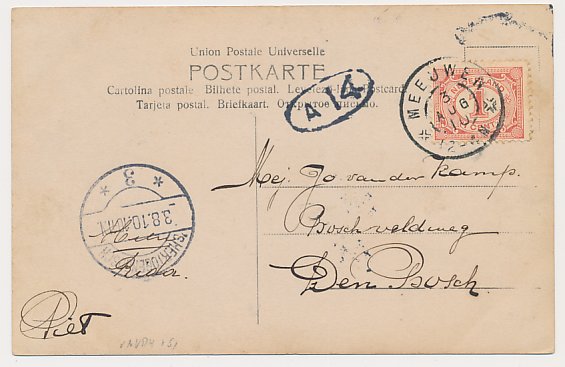 Union Postale Universelle
POSTKARTE
Cartolina postale Bilhete postal. Levelező-lap Postcard
Tarjeta postal. Briefkaart. Открытое письмо.
A 14
MEEUWEN
3
AUG
12-
NEDERLAND
Mej. Jo van der Kamp.
Boschveldweg
Den Bosch
3
3.8.10
Piet